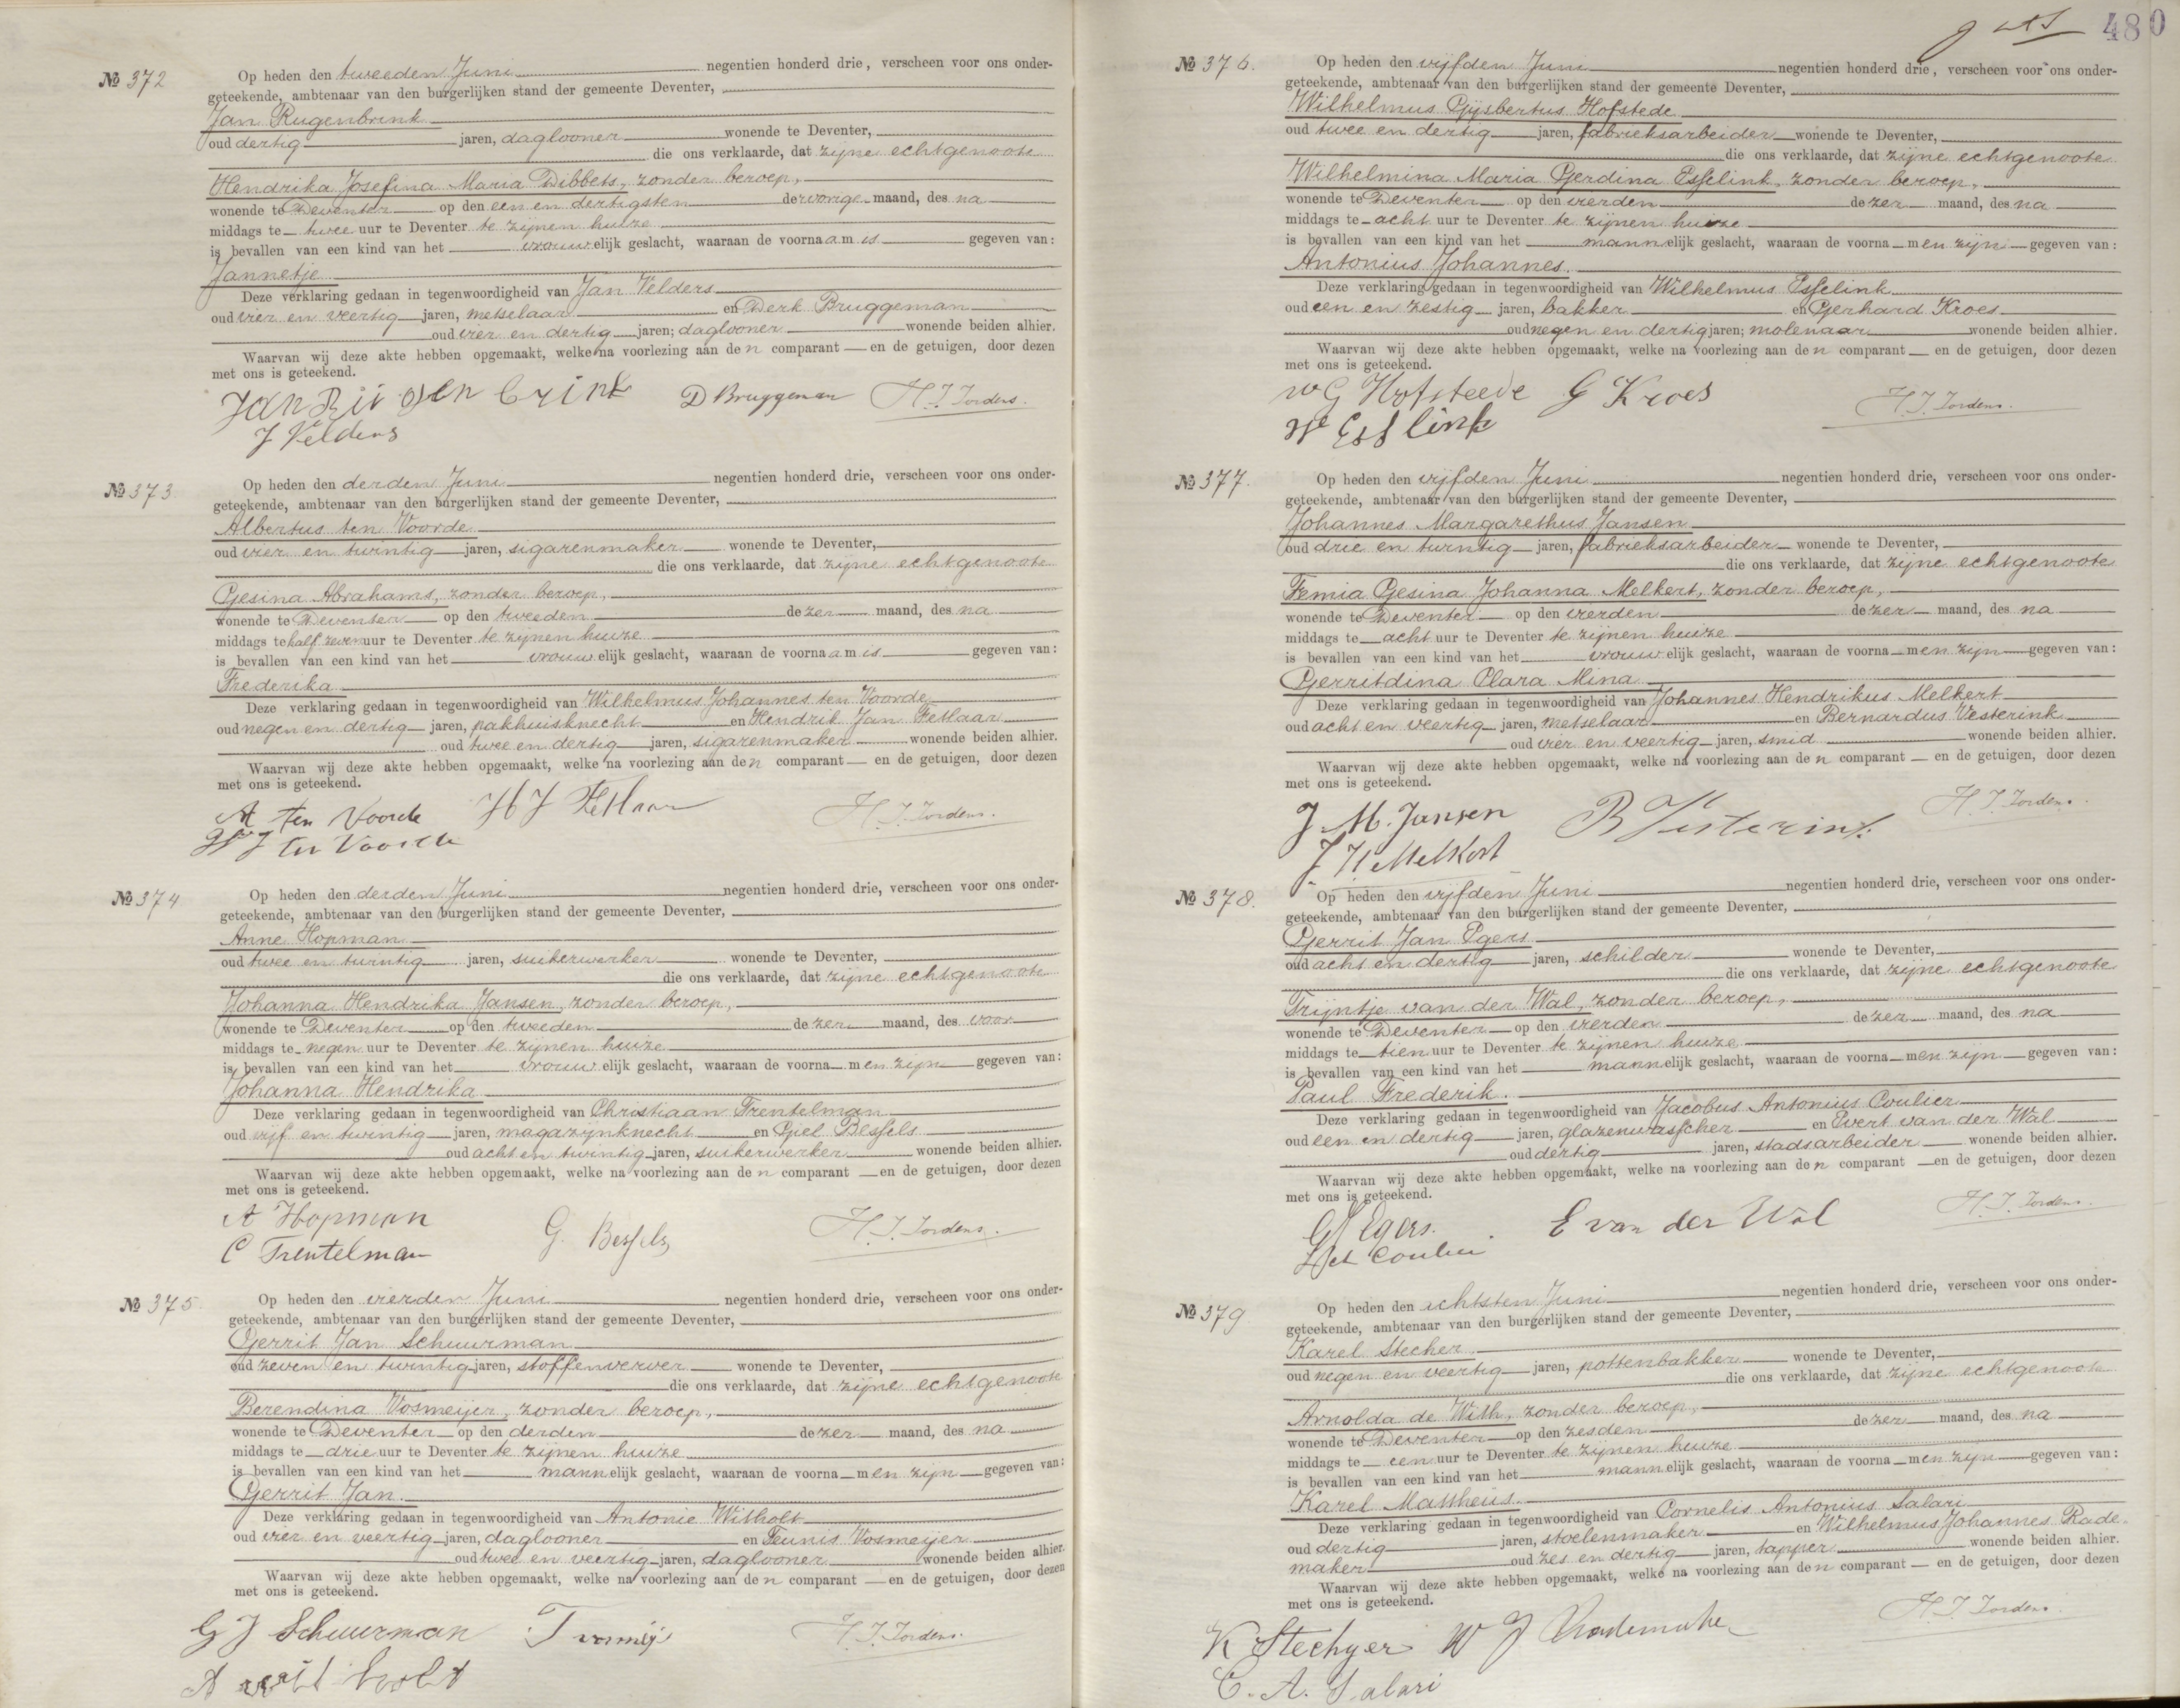 № 372
Op heden den tweeden Juni negentien honderd drie, verscheen voor ons onder-
geteekende, ambtenaar van den burgerlijken stand der gemeente Deventer,
Jan Rugenbrink
oud dertig jaren, daglooner wonende te Deventer,
die ons verklaarde, dat zijne echtgenoote
Hendrika Josefina Maria Dibbets, zonder beroep,
wonende te Deventer op den een en dertigsten der vorige maand, des na
middags te twee uur te Deventer te zijnen huize
is bevallen van een kind van het vrouwelijk geslacht, waaraan de voornaam is gegeven van:
Jannetje
Deze verklaring gedaan in tegenwoordigheid van Jan Velders
oud vier en veertig jaren, metselaar en Derk Bruggeman
oud vier en dertig jaren; daglooner wonende beiden alhier.
Waarvan wij deze akte hebben opgemaakt, welke na voorlezing aan den comparant en de getuigen, door dezen
met ons is geteekend.
D Bruggeman H. J. Jordens.
J Velders
№ 373
Op heden den derden Juni negentien honderd drie, verscheen voor ons onder-
geteekende, ambtenaar van den burgerlijken stand der gemeente Deventer,
Albertus ten Voorde
oud vier en twintig jaren, sigarenmaker wonende te Deventer,
die ons verklaarde, dat zijne echtgenoote
Gesina Abrahams, zonder beroep,
wonende te Deventer op den tweeden dezer maand, des na
middags te half zeven uur te Deventer te zijnen huize
is bevallen van een kind van het vrouwelijk geslacht, waaraan de voornaam is gegeven van:
Frederika
Deze verklaring gedaan in tegenwoordigheid van Wilhelmus Johannes ten Voorde
oud negen en dertig jaren, pakhuisknecht en Hendrik Jan Fetlaar
oud twee en dertig jaren, sigarenmaker wonende beiden alhier.
Waarvan wij deze akte hebben opgemaakt, welke na voorlezing aan den comparant en de getuigen, door dezen
met ons is geteekend.
A ten Voorde H J Fetlaar H. J. Jordens.
W J ten Voorde
№ 374
Op heden den derden Juni negentien honderd drie, verscheen voor ons onder-
geteekende, ambtenaar van den burgerlijken stand der gemeente Deventer,
Anne Hopman
oud twee en twintig jaren, suikerwerker wonende te Deventer,
die ons verklaarde, dat zijne echtgenoote
Johanna Hendrika Jansen, zonder beroep,
wonende te Deventer op den tweeden dezer maand, des voor
middags te negen uur te Deventer te zijnen huize
is bevallen van een kind van het vrouwelijk geslacht, waaraan de voornamen zijn gegeven van:
Johanna Hendrika
Deze verklaring gedaan in tegenwoordigheid van Christiaan Trentelman
oud vijf en twintig jaren, magazijnknecht en Giel Bessels
oud acht en twintig jaren, suikerwerker wonende beiden alhier.
Waarvan wij deze akte hebben opgemaakt, welke na voorlezing aan den comparant en de getuigen, door dezen
met ons is geteekend.
A Hopman G. Bessels H. J. Jordens.
C Trentelman
№ 375
Op heden den vierden Juni negentien honderd drie, verscheen voor ons onder-
geteekende, ambtenaar van den burgerlijken stand der gemeente Deventer,
Gerrit Jan Schuurman
oud zeven en twintig jaren, stoffenverver wonende te Deventer,
die ons verklaarde, dat zijne echtgenoote
Berendina Vosmeijer, zonder beroep,
wonende te Deventer op den derden dezer maand, des na
middags te drie uur te Deventer te zijnen huize
is bevallen van een kind van het mannelijk geslacht, waaraan de voornamen zijn gegeven van:
Gerrit Jan.
Deze verklaring gedaan in tegenwoordigheid van Antonie Witholt
oud vier en veertig jaren, daglooner en Teunis Vosmeijer
oud twee en veertig jaren, daglooner wonende beiden alhier.
Waarvan wij deze akte hebben opgemaakt, welke na voorlezing aan den comparant en de getuigen, door dezen
met ons is geteekend.
G J Schuurman H. J. Jordens.
480
№ 376.
Op heden den vijfden Juni negentien honderd drie, verscheen voor ons onder-
geteekende, ambtenaar van den burgerlijken stand der gemeente Deventer,
Wilhelmus Gijsbertus Hofstede
oud twee en dertig jaren, fabrieksarbeider wonende te Deventer,
die ons verklaarde, dat zijne echtgenoote
Wilhelmina Maria Gerdina Esselink, zonder beroep,
wonende te Deventer op den vierden dezer maand, des na
middags te acht uur te Deventer te zijnen huize
is bevallen van een kind van het mannelijk geslacht, waaraan de voornamen zijn gegeven van:
Antonius Johannes.
Deze verklaring gedaan in tegenwoordigheid van Wilhelmus Esselink
oud een en zestig jaren, bakker en Gerhard Kroes
oud negen en dertig jaren; molenaar wonende beiden alhier.
Waarvan wij deze akte hebben opgemaakt, welke na voorlezing aan den comparant en de getuigen, door dezen
met ons is geteekend.
W G Hofsteede G Kroes H. J. Jordens.
W Esslink
№ 377.
Op heden den vijfden Juni negentien honderd drie, verscheen voor ons onder-
geteekende, ambtenaar van den burgerlijken stand der gemeente Deventer,
Johannes Margarethus Jansen
oud drie en twintig jaren, fabrieksarbeider wonende te Deventer,
die ons verklaarde, dat zijne echtgenoote
Femia Gesina Johanna Melkert, zonder beroep,
wonende te Deventer op den vierden dezer maand, des na
middags te acht uur te Deventer te zijnen huize
is bevallen van een kind van het vrouwelijk geslacht, waaraan de voornamen zijn gegeven van:
Gerritdina Clara Mina
Deze verklaring gedaan in tegenwoordigheid van Johannes Hendrikus Melkert
oud acht en veertig jaren, metselaar en Bernardus Vesterink
oud vier en veertig jaren, smid wonende beiden alhier.
Waarvan wij deze akte hebben opgemaakt, welke na voorlezing aan den comparant en de getuigen, door dezen
met ons is geteekend.
J. M. Jansen B Vesterink H. J. Jordens.
J H Melkert
№ 378.
Op heden den vijfden Juni negentien honderd drie, verscheen voor ons onder-
geteekende, ambtenaar van den burgerlijken stand der gemeente Deventer,
Gerrit Jan Egers
oud acht en dertig jaren, schilder wonende te Deventer,
die ons verklaarde, dat zijne echtgenoote
Trijntje van der Wal, zonder beroep,
wonende te Deventer op den vierden dezer maand, des na
middags te tien uur te Deventer te zijnen huize
is bevallen van een kind van het mannelijk geslacht, waaraan de voornamen zijn gegeven van:
Paul Frederik.
Deze verklaring gedaan in tegenwoordigheid van Jacobus Antonius Coulier
oud een en dertig jaren, glazenwasscher en Evert van der Wal
oud dertig jaren, stadsarbeider wonende beiden alhier.
Waarvan wij deze akte hebben opgemaakt, welke na voorlezing aan den comparant en de getuigen, door dezen
met ons is geteekend.
GJ Egers. E van der Wal H. J. Jordens.
№ 379
Op heden den achtsten Juni negentien honderd drie, verscheen voor ons onder-
geteekende, ambtenaar van den burgerlijken stand der gemeente Deventer,
Karel Stecher
oud negen en veertig jaren, pottenbakker wonende te Deventer,
die ons verklaarde, dat zijne echtgenoote
Arnolda de With, zonder beroep,
wonende te Deventer op den zesden dezer maand, des na
middags te een uur te Deventer te zijnen huize
is bevallen van een kind van het mannelijk geslacht, waaraan de voornamen zijn gegeven van:
Karel Mattheus.
Deze verklaring gedaan in tegenwoordigheid van Cornelis Antonius Salari
oud dertig jaren, stoelenmaker en Wilhelmus Johannes Rade-
maker oud zes en dertig jaren, tapper wonende beiden alhier.
Waarvan wij deze akte hebben opgemaakt, welke na voorlezing aan den comparant en de getuigen, door dezen
met ons is geteekend.
K Stechyer W J Rademaker H. J. Jordens.
C. A. Salari